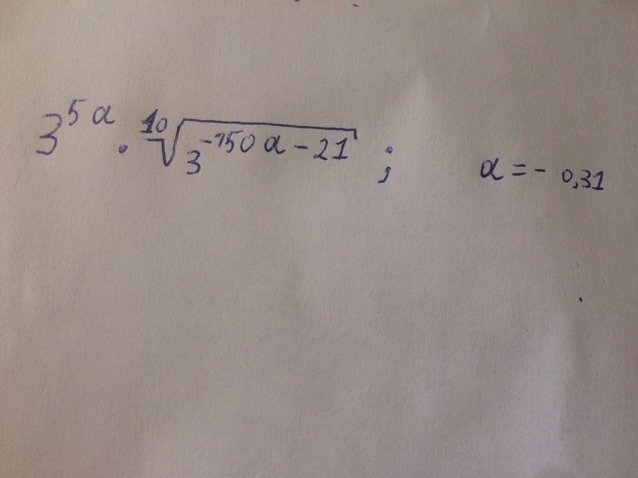 3^{5a} · \sqrt[10]{3^{-150a-21}} ; a = - 0,31